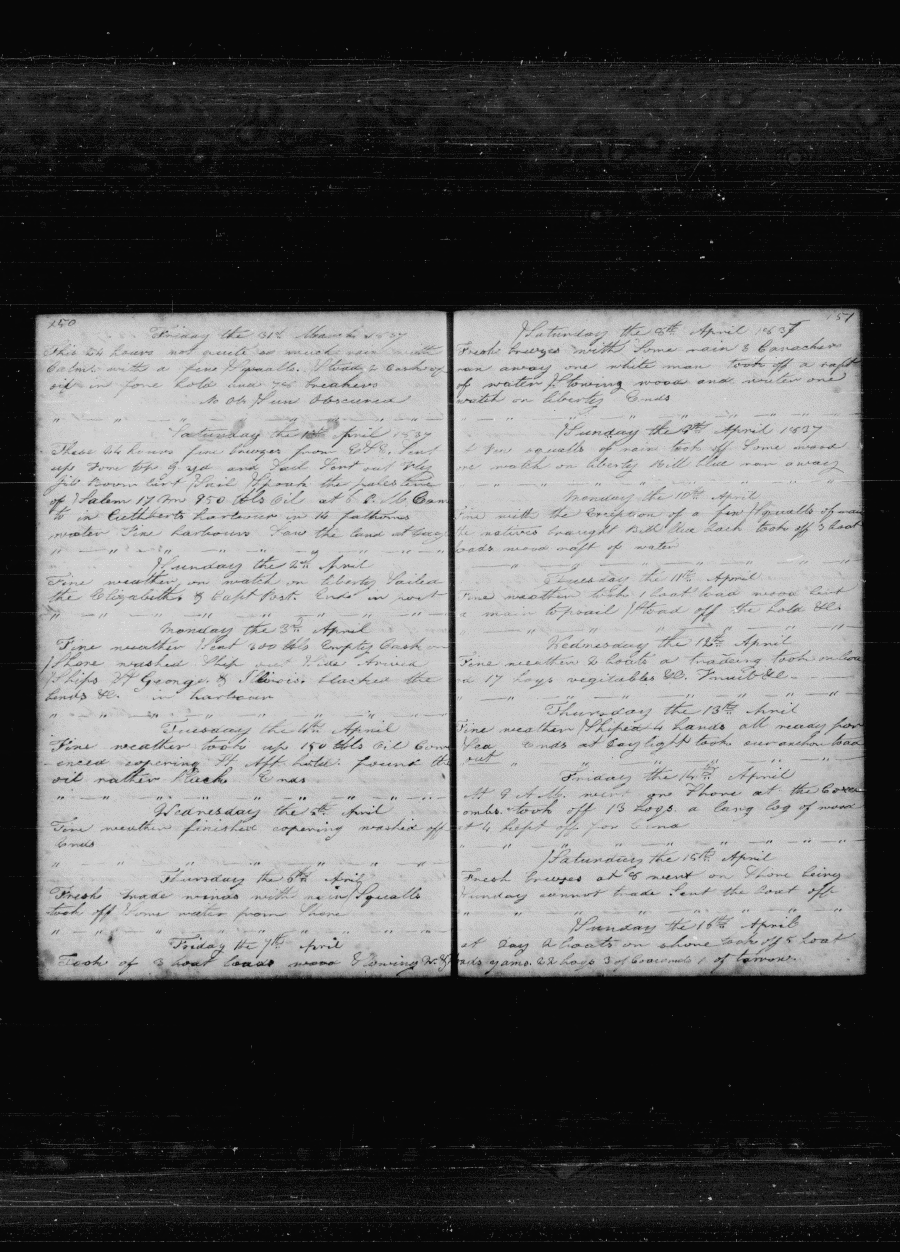 150
Friday the 31st March 1837
This 24 hours not quite as much rain with
Calms with a fine Squalls. Stowd 2 Casks of
oil in fore hold and 7 Breakers
No Ob Sun Obscured
Saturday the 1st April 1837
These 24 hours fine breezes from Sent
up Fore top G yd and Sent out Fly
jib Boom Sail Spoak the palestine
of Salem 17 m 950 bbls Oil at 5 P. M. Came
to in Cuthberts harbour in 14 fathoms
water Fine harbour Saw the land at day
Sunday the 2nd April
Fine weather on watch on liberty Sailed
the Elizabeth & Capt Post. Ends in port
Monday the 3rd April
Fine weather Sent 300 bbls Empty Cask on
Shore washed Ship Arived
Ships St George & Illinois. blacked the
bends &c. in harbour
Tuesday the 4th April
Fine weather took up 150 bbls Oil Com
-enced copering it Aft hold. found the
oil rather Ends
Wednesday the 5th April
Fine weather finished copering washed off
Ends
Thursday the 6th April
Fresh trade winds with rain Squalls
took off Some water from Shore
Friday the 7th April
Took of 3 boat loads wood & Stowing
151
Saturday the 8th April 1837
Fresh breezes with Some rain 3 Canackers
ran away one white man took off a raft
of water Stowing wood and water one
watch on liberty Ends
Sunday the 9th April 1837
A Few squalls of rain took off Some wood
one watch on liberty Bill ran away
Monday the 10th April
Fine with the Exception of a few Squalls of rain
the natives braught Bill back took off 3 boat
loads wood raft of water
Tuesday the 11th April
Fine weather took 1 boat load wood bent
a main topsail Stowd off the hold &c.
Wednesday the 12th April
Fine weather 2 boats a trading took on board
17 hogs vegitables &c. Fruit &c
Thursday the 13th April
Fine weather Shiped 4 hands all ready for
Sea Ends at day light took our anchor &
out
Friday the 14th April
At 9 A. M. went one Shore at the
took off 13 hogs a long log of wood
at 4 kept off for
Saturday the 15th April
Fresh breezes at 8 went on Shore being
Sunday cannot trade Sent the boat off
Sunday the 16th April
at day 2 boats on shore took off 5 boat
loads yams. 22 hogs 3 of 1 of